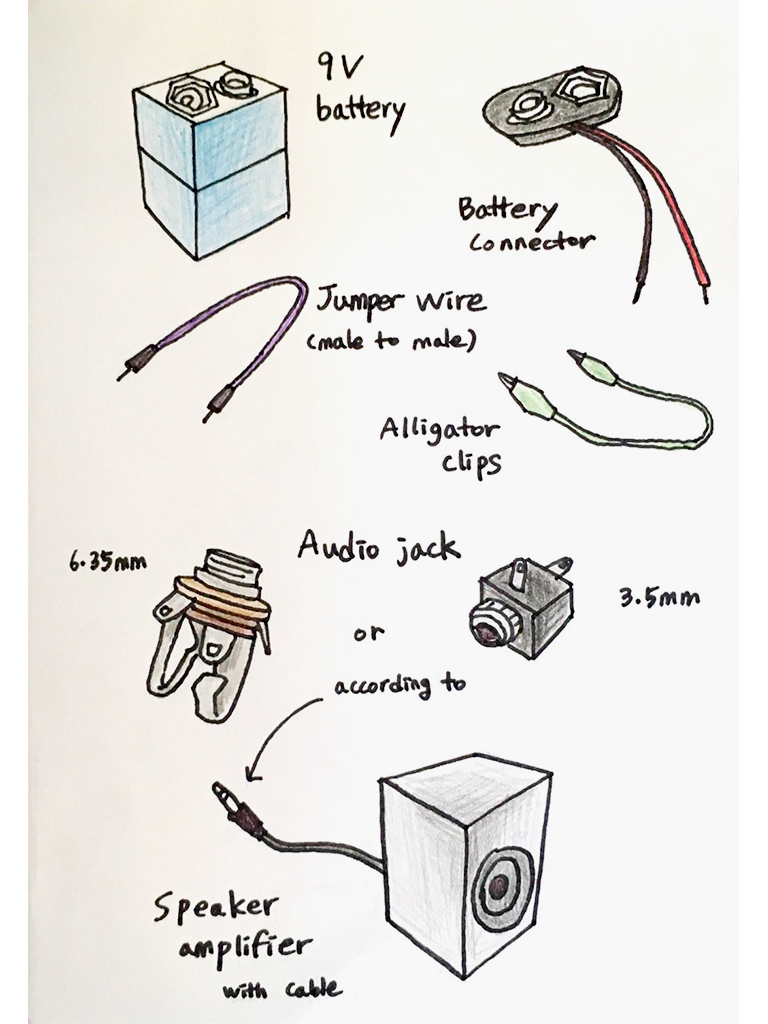 9V
battery
Battery
Connector
Jumper wire
(male to male)
Alligator
clips
Audio jack
6.35mm
3.5mm
or
according to
Speaker
amplifier
with cable